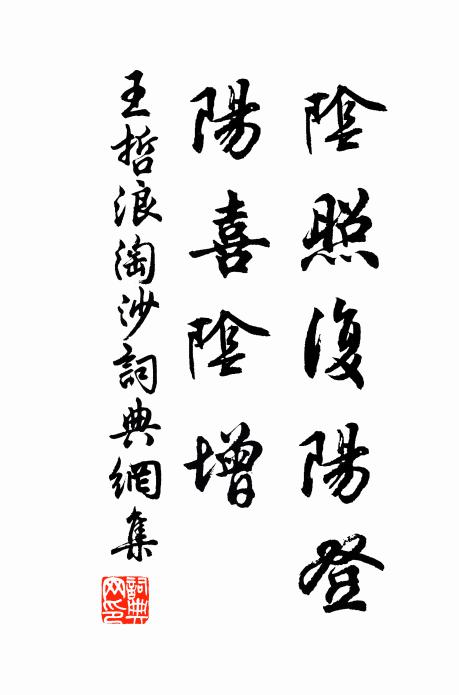 陰照復陽登
陽喜陰增
王哲浪淘沙詞典網集
詞典網印